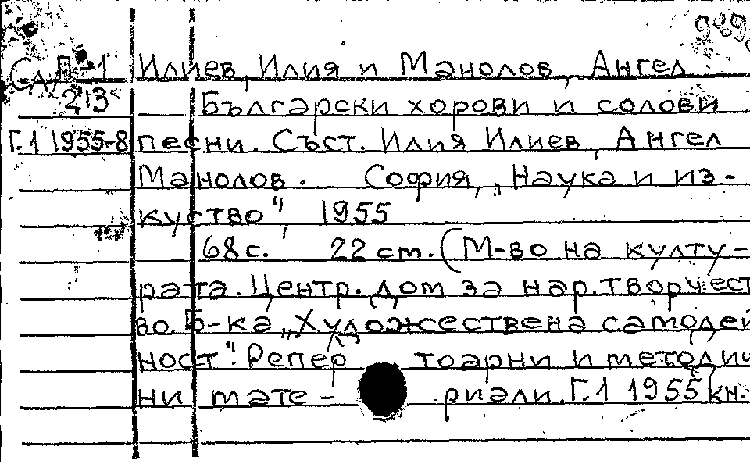 СлД-1 Илиев, Илия и Манолов, Ангел
213 Български хорови и солови
Г.1 1955-8 песни. Съст. Илия Илиев, Ангел
Манолов. София, „Наука и из-
куство“, 1955
68 с. 22 cm. (М-во на култу-
рата. Центр. дом за нар. творчест
во. Б-ка „Художествена самодей
ност“. Репер тоарни и методич
ни мате- риали. Г.1 1955 кн.